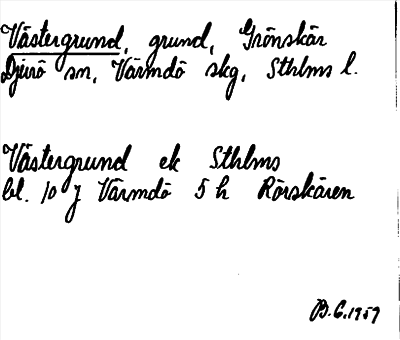 Västergrund, grund, Grönskär
Djurö sn, Värmdö skg, Sthlms l.
Västergrund ek Sthlms
bl. 10 J Värmdö 5 h Rörskären
B.C. 1959